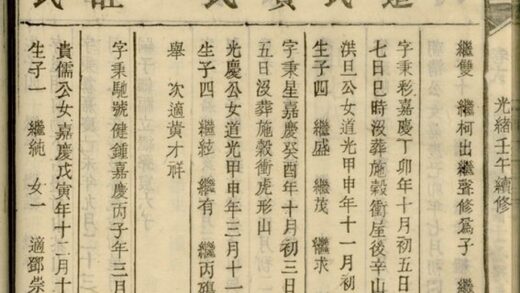 光緒壬午續修
繼雙 繼柯出繼聲修爲子 繼
字秉彩嘉慶丁卯年十月初五日
七日巳時沒葬施穀衝屋後辛山
洪旦公女道光甲申年十一月初
生子四 繼盛 繼茂 繼求
字秉星嘉慶癸酉年十月初三日
五日沒葬施穀衝虎形山
光慶公女道光甲申年三月十一
生子四 繼絃 繼有 繼丙
舉 次適黃才祥
字秉馳號健鍾嘉慶丙子年三月
貴儒公女嘉慶戊寅年十二月十
生子一 繼純 女一 適鄧崇